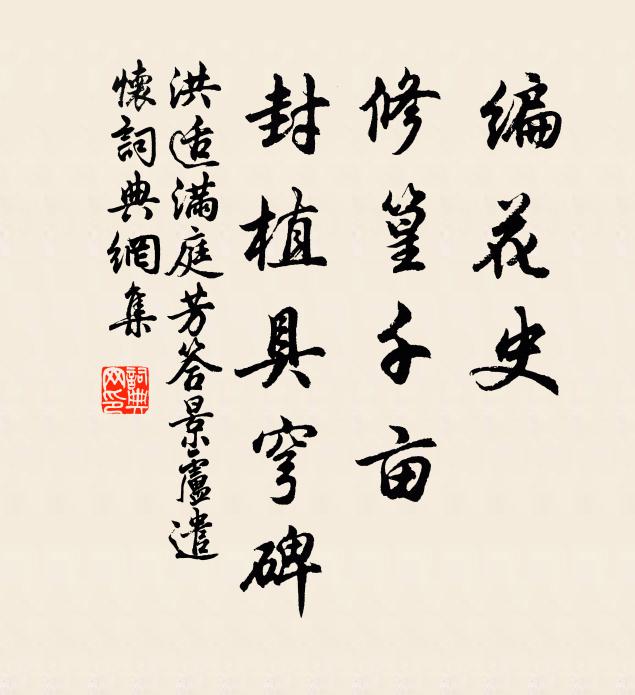 编花史
修篁千亩
封植具穹碑
洪适满庭芳答景盧遣
懷詞典網集
詞典网印